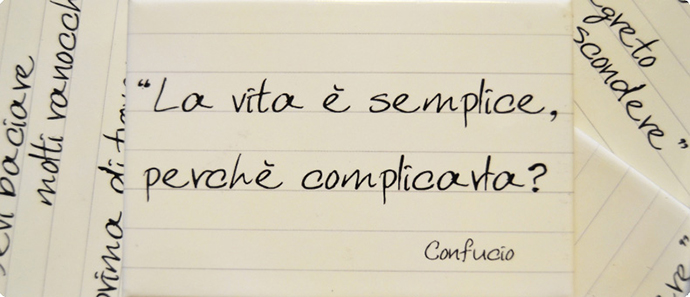 evi baciare
molti ranocch
prima di
“La vita è semplice,
perchè complicarla?
Confucio
greto
scondere”
re”